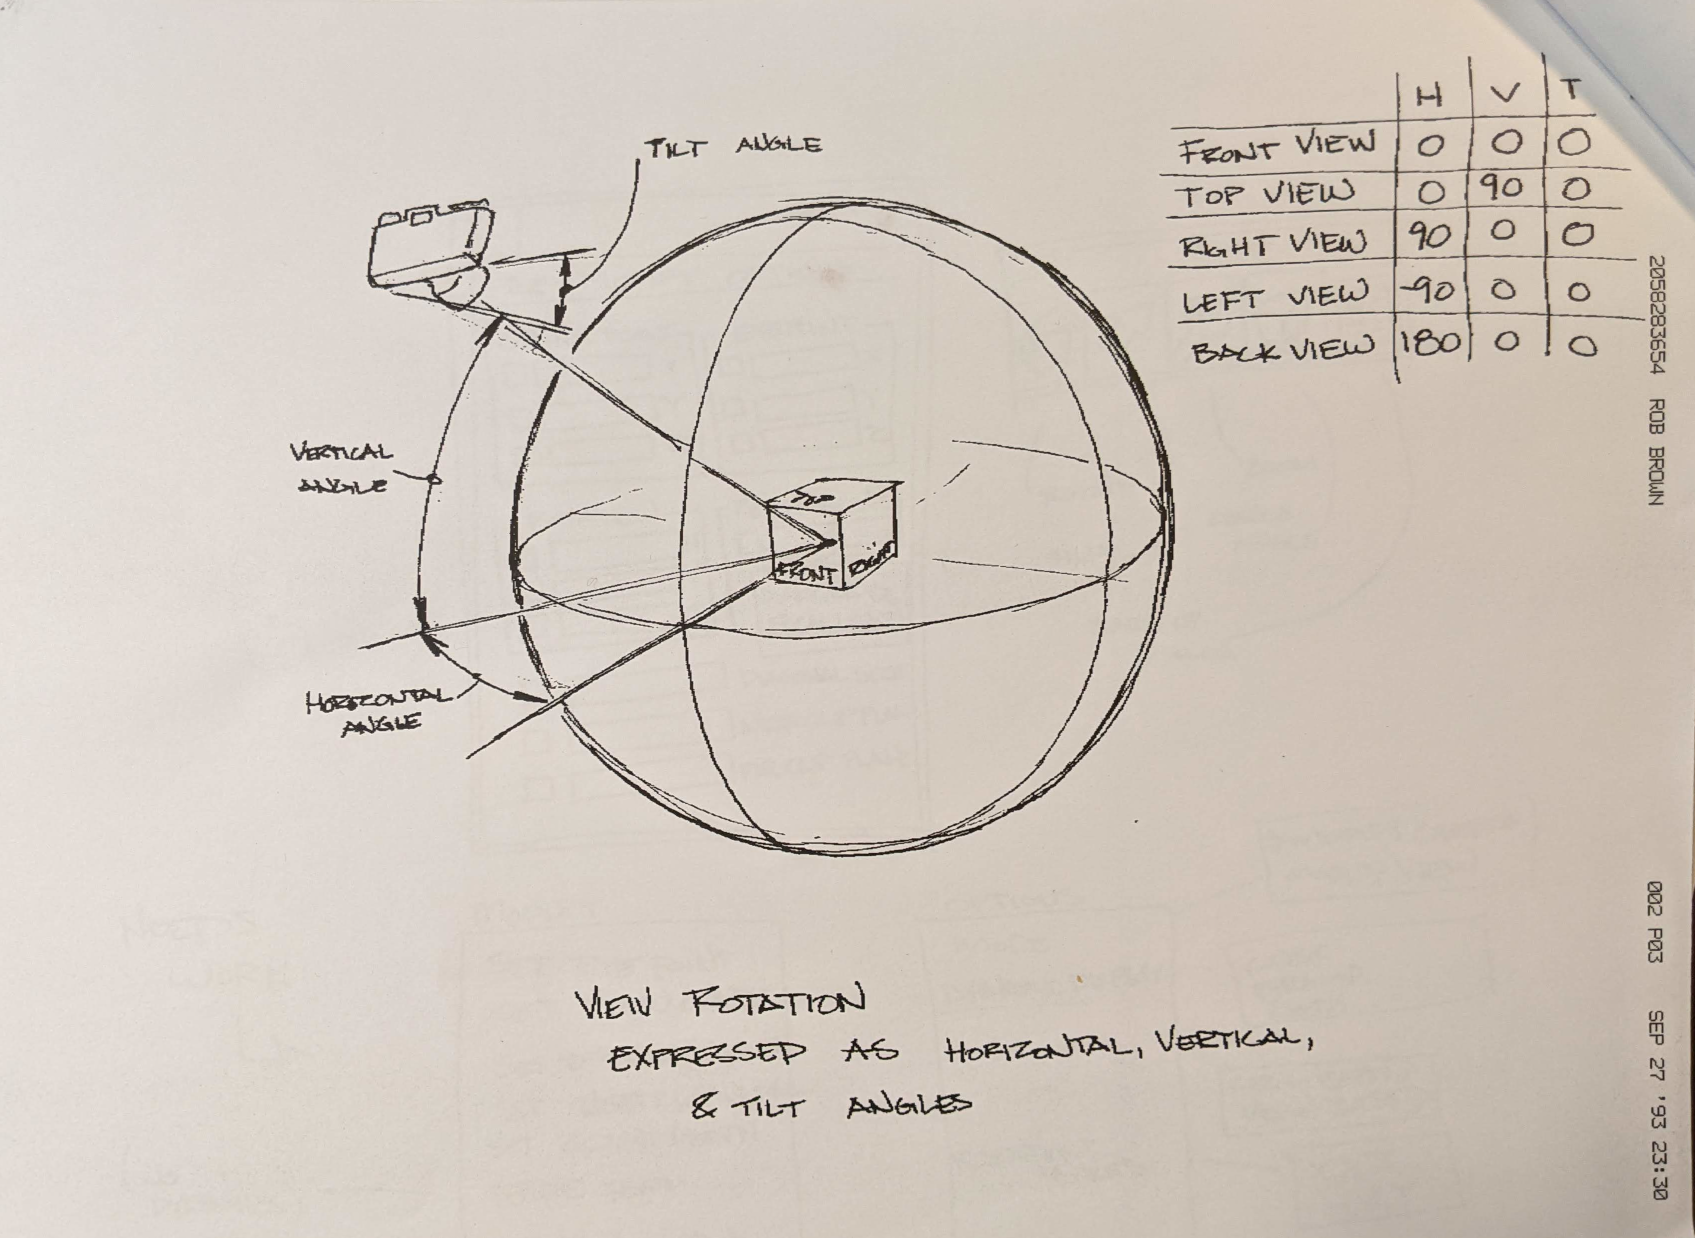 TILT ANGLE
H V T
FRONT VIEW 0 0 0
TOP VIEW 0 90 0
RIGHT VIEW 90 0 0
LEFT VIEW -90 0 0
BACK VIEW 180 0 0
VERTICAL
ANGLE
TOP
FRONT
RIGHT
HORIZONTAL
ANGLE
VIEW ROTATION
EXPRESSED AS HORIZONTAL, VERTICAL,
& TILT ANGLES
2058283654 ROB BROWN 002 P03 SEP 27 '93 23:30